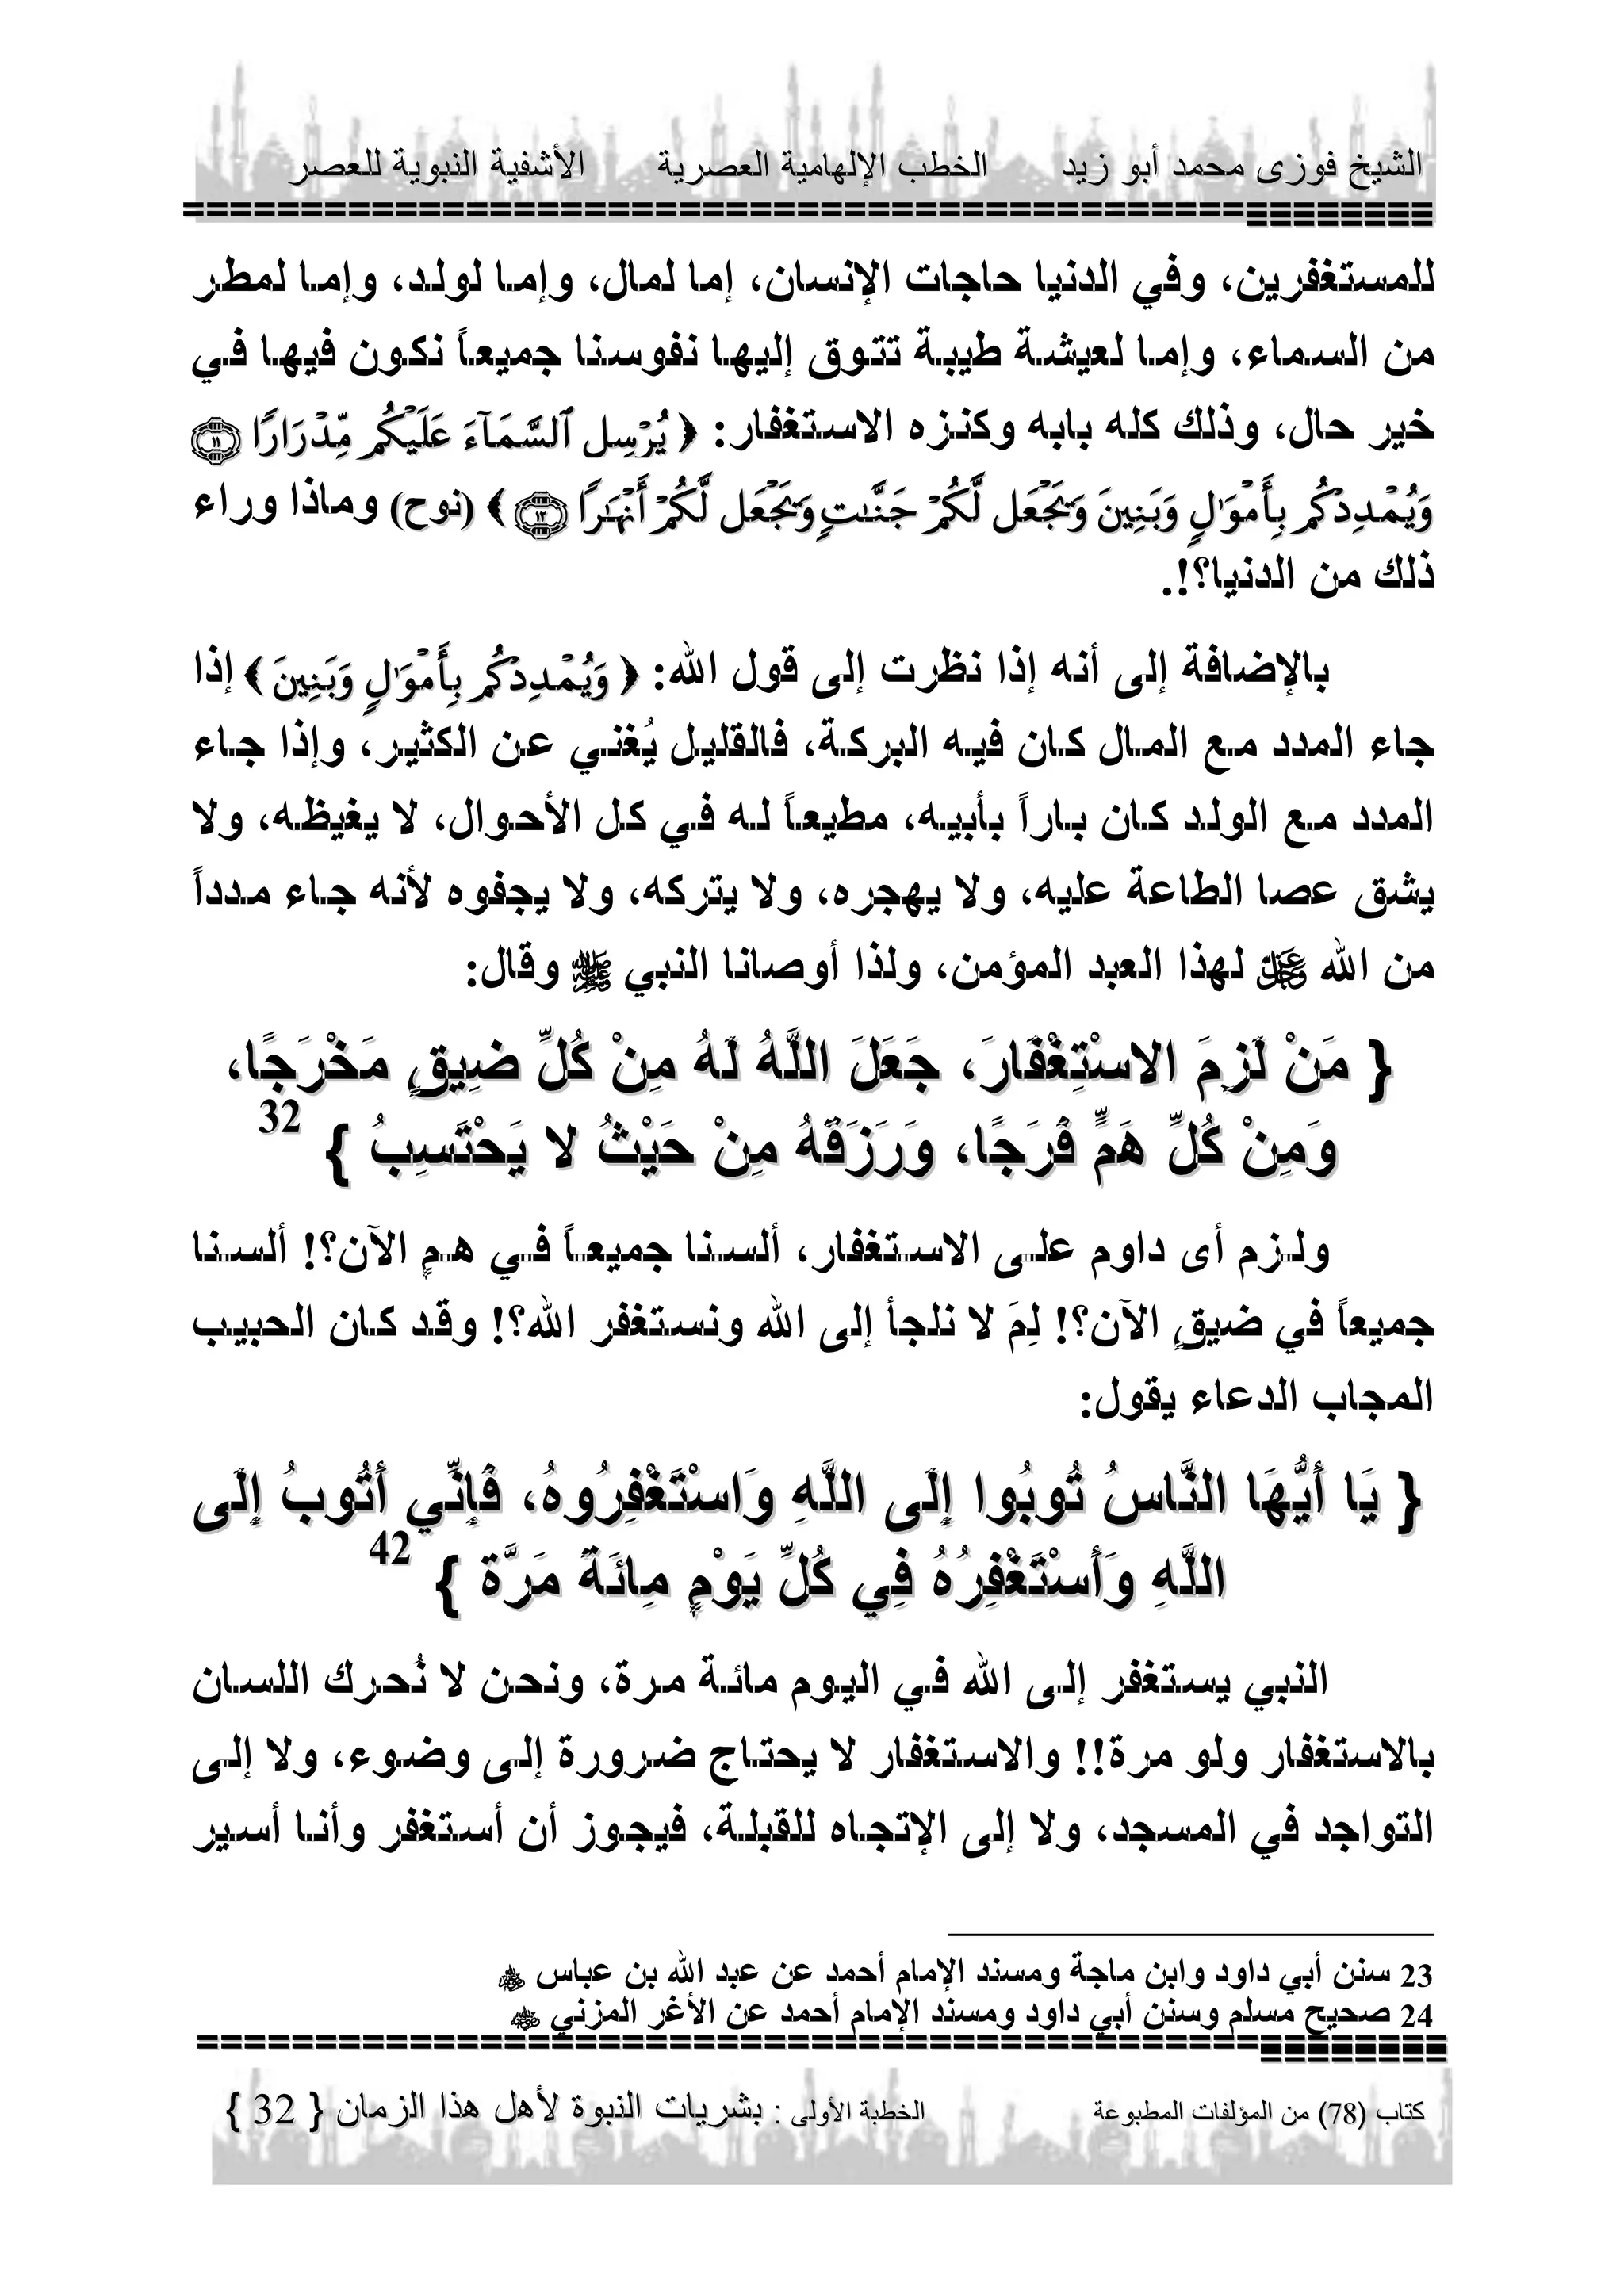 الشيخ فوزى محمد أبو زيد الخطب الإلهامية العصرية الأشفية النبوية للعصر
للمستغفرين، وفي الدنيا حاجات الإنسان، إما لمال، وإما لولد، وإما لمطر
من السماء، وإما لعيشة طيبة تتوق إليها نفوسنا جميعاً نكون فيها في
خير حال، وذلك كله بابه وكنزه الاستغفار: ﴿ يُرْسِلِ ٱلسَّمَآءَ عَلَيْكُم مِّدْرَارًا ١١
وَيُمْدِدْكُم بِأَمْوَٰلٍ وَبَنِينَ وَيَجْعَل لَّكُمْ جَنَّٰتٍ وَيَجْعَل لَّكُمْ أَنْهَٰرًا ١٢ ﴾ (نوح) وماذا وراء
ذلك من الدنيا؟!.
بالإضافة إلى أنه إذا نظرت إلى قول الله: ﴿ وَيُمْدِدْكُم بِأَمْوَٰلٍ وَبَنِينَ ﴾ إذا
جاء المدد مع المال كان فيه البركة، فالقليل يُغني عن الكثير، وإذا جاء
المدد مع الولد كان باراً بأبيه، مطيعاً له في كل الأحوال، لا يغيظه، ولا
يشق عصا الطاعة عليه، ولا يهجره، ولا يتركه، ولا يجفوه لأنه جاء مدداً
من الله عز وجل لهذا العبد المؤمن، ولذا أوصانا النبي ﷺ وقال:
{ مَنْ لَزِمَ الاسْتِغْفَارَ، جَعَلَ اللَّهُ لَهُ مِنْ كُلِّ ضِيقٍ مَخْرَجًا،
وَمِنْ كُلِّ هَمٍّ فَرَجًا، وَرَزَقَهُ مِنْ حَيْثُ لا يَحْتَسِبُ } 32
ولزم أى داوم على الاستغفار، ألسنا جميعاً في همٍ الآن؟! ألسنا
جميعاً في ضيقٍ الآن؟! لِمَ لا نلجأ إلى الله ونستغفر الله؟! وقد كان الحبيب
المجاب الدعاء يقول:
{ يَا أَيُّهَا النَّاسُ تُوبُوا إِلَى اللَّهِ وَاسْتَغْفِرُوهُ، فَإِنِّي أَتُوبُ إِلَى
اللَّهِ وَأَسْتَغْفِرُهُ فِي كُلِّ يَوْمٍ مِائَةَ مَرَّة } 42
النبي يستغفر إلى الله في اليوم مائة مرة، ونحن لا نُحرك اللسان
بالاستغفار ولو مرة!! والاستغفار لا يحتاج ضرورة إلى وضوء، ولا إلى
التواجد في المسجد، ولا إلى الإتجاه للقبلة، فيجوز أن أستغفر وأنا أسير
23 سنن أبي داود وابن ماجة ومسند الإمام أحمد عن عبد الله بن عباس
24 صحيح مسلم وسنن أبي داود ومسند الإمام أحمد عن الأغر المزني
كتاب (78) من المؤلفات المطبوعة الخطبة الأولى : بشريات النبوة لأهل هذا الزمان { 32 }